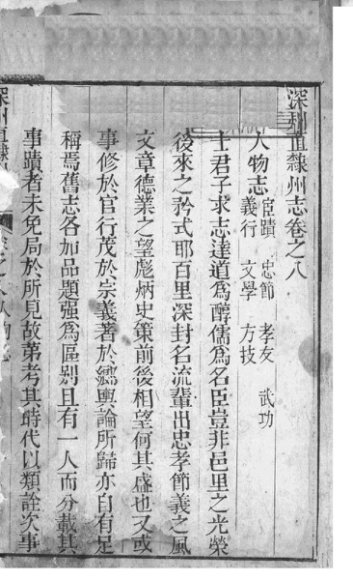 深州直隸州志卷之八
人物志 宦蹟 忠節 孝友 武功
義行 文學 方技
士君子求志達道為醇儒為名臣豈非邑里之光榮
後來之矜式耶百里深封名流輩出忠孝節義之風
文章德業之望彪炳史策前後相望何其盛也又或
事修於官行茂於宗義著於鄉輿論所歸亦自有足
稱焉舊志各加品題强為區别且有一人而分載其
事蹟者未免局於所見故第考其時代以類詮次事
深州直隸